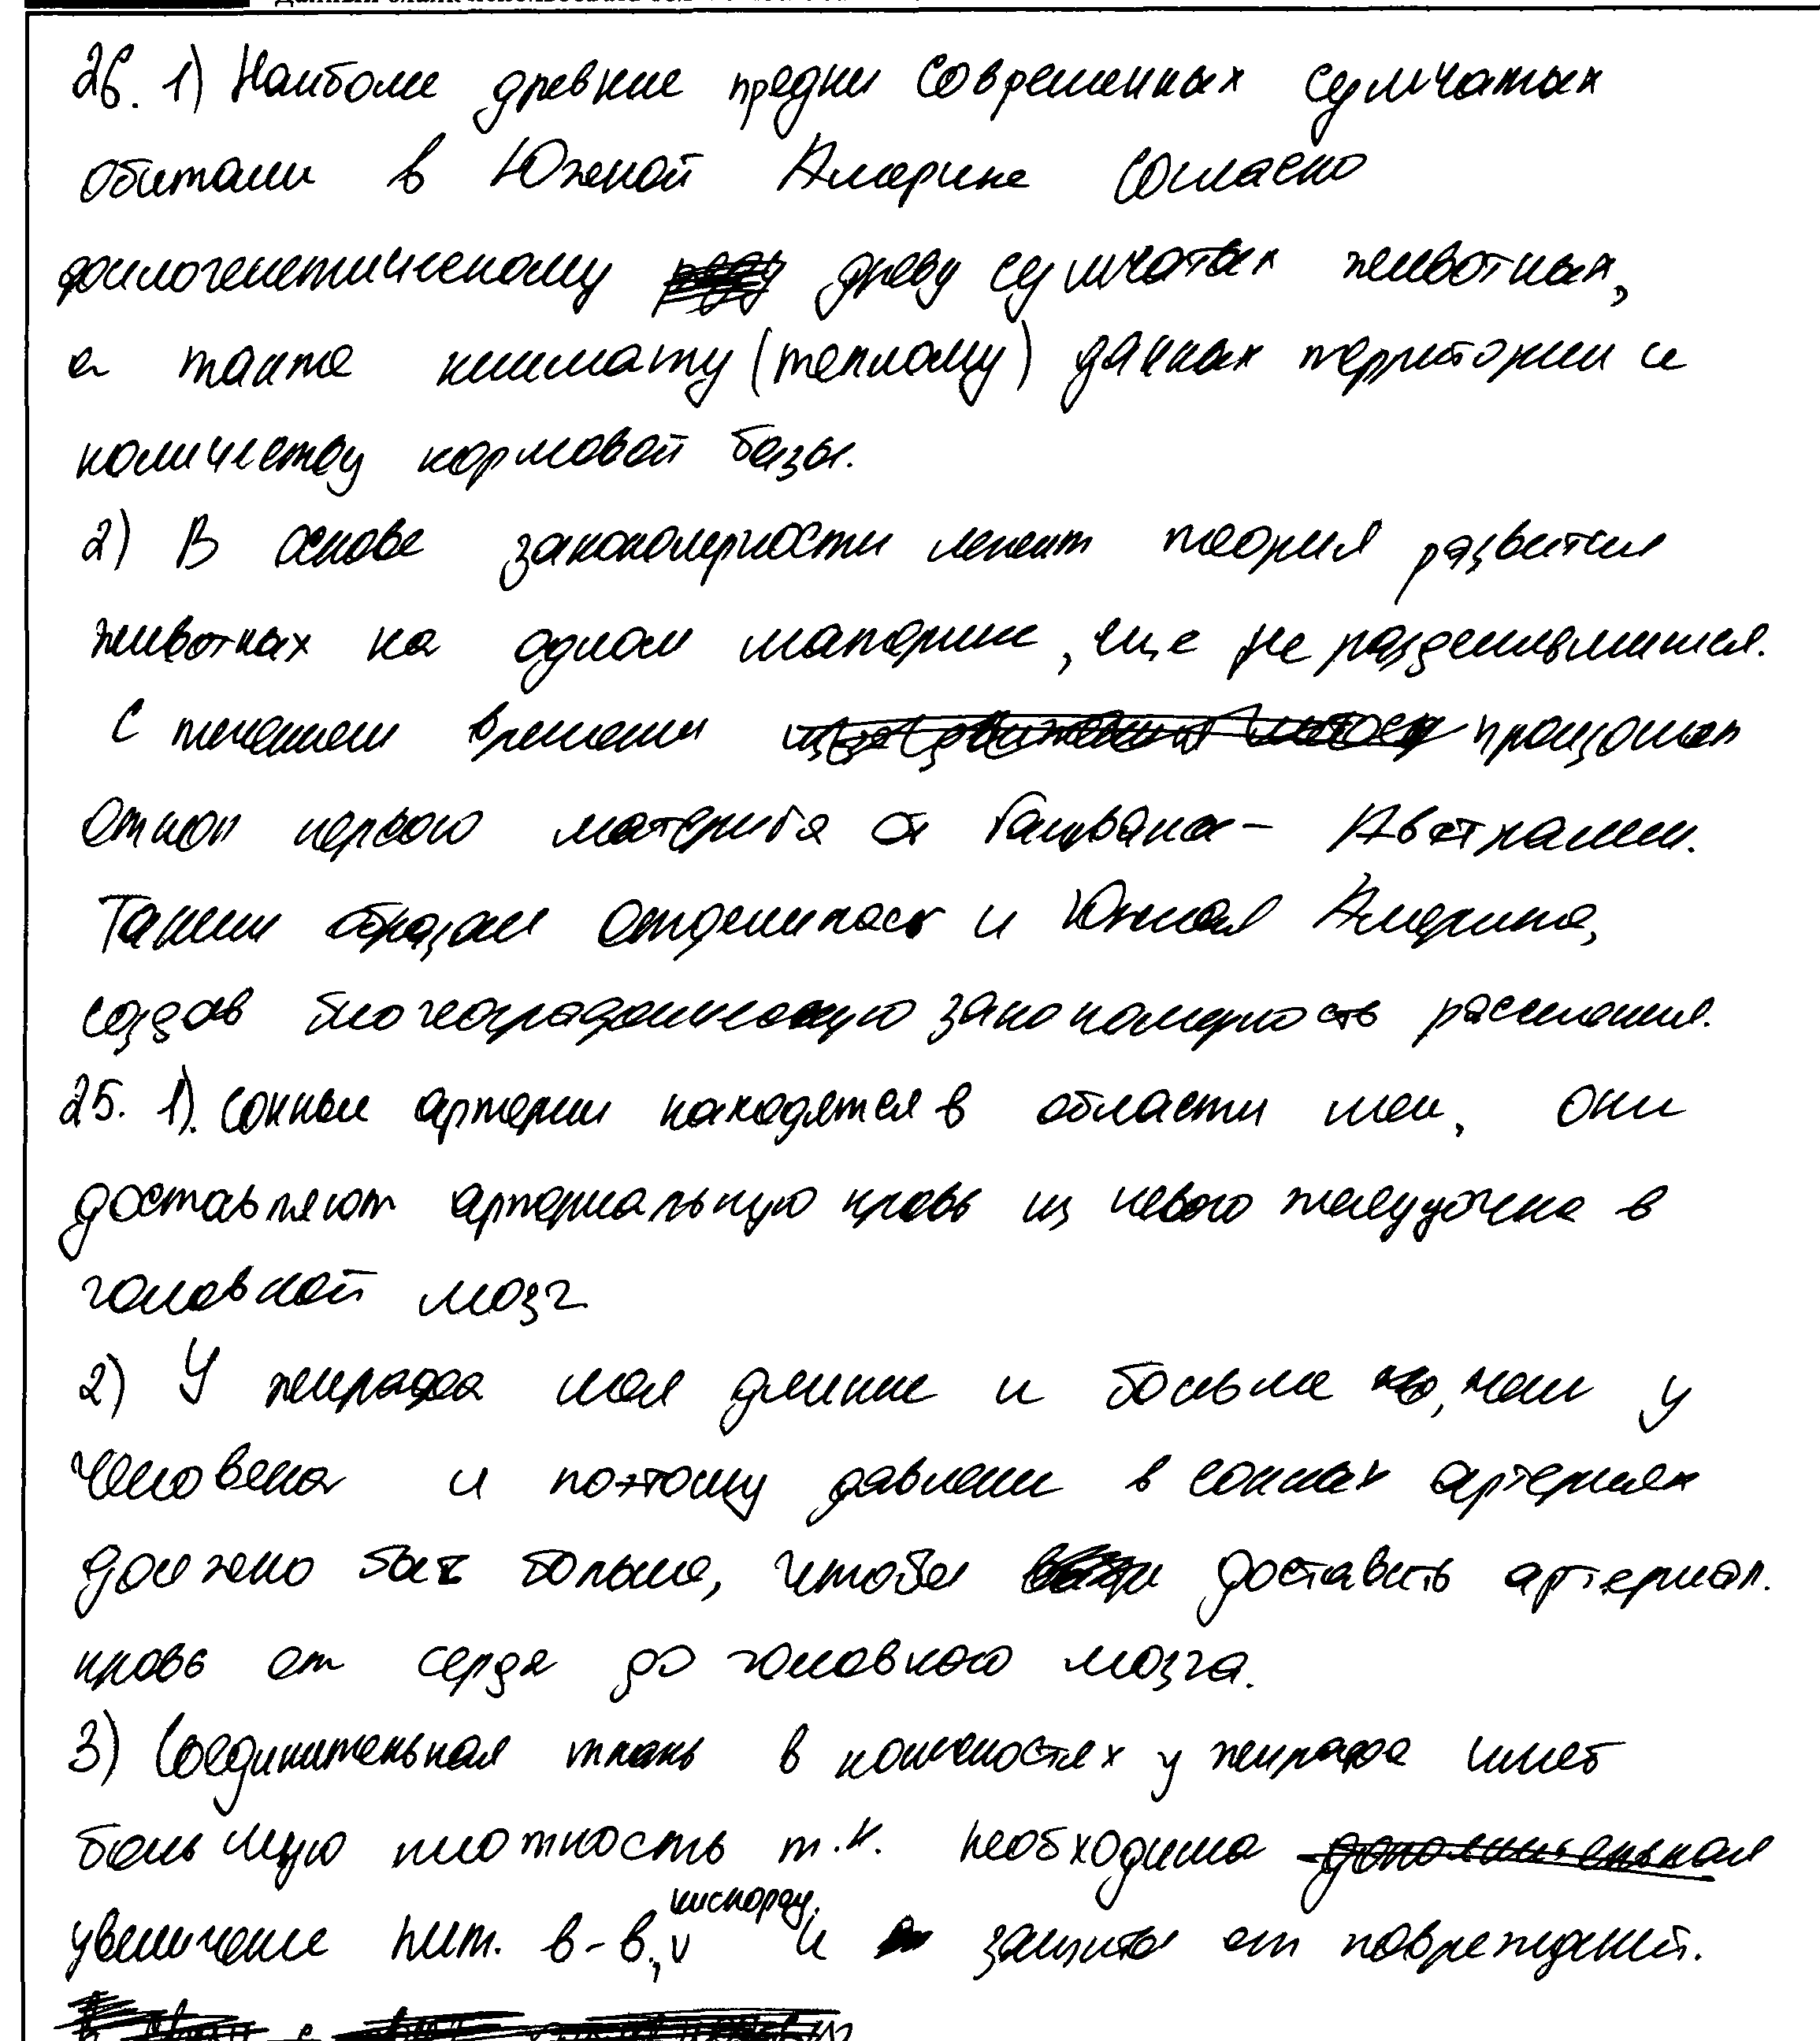 26. 1) Наиболее древние предки современных сумчатых
обитали в Южной Америке согласно
филогенетическому древу сумчатых животных,
а также климату (теплому) данных территории и
количеству кормовой базы.
2) В основе закономерности лежит теория развития
животных на одном материке, еще не разделившимся.
С течением времени произошел
откол первого материка от Гандваны - Австралии.
Таким образом отделилась и Южная Америка,
создав биогеографическую закономерность расселения.
25. 1). Сонные артерии находятся в области шеи, они
доставляют артериальную кровь из левого желудочка в
головной мозг
2) У жирафа шея длинне и больше, чем у
человека и поэтому давление в сонных артериях
должно быть больше, чтобы доставить артериал.
кровь от сердя до головного мозга.
3) Соединительная ткань в конечностях у жирафа имеет
большую плотность т.к. необходима
увеличение пит. в-в, кислород. и защиты от повреждений.